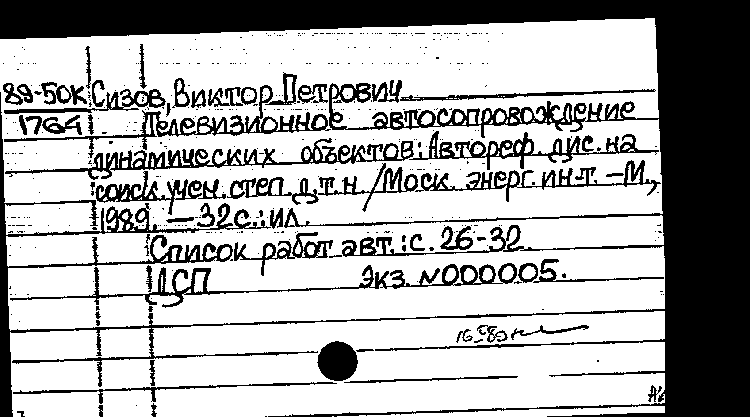 89-50К Сизов, Виктор Петрович
1764 Телевизионное автосопровождение
динамических объектов: Автореф. дис. на
соиск. учен. степ. д.т.н. / Моск. энерг. ин-т. – М.,
1989. – 32 с.: ил.
Список работ авт.: с. 26-32.
ДСП Экз. N000005.